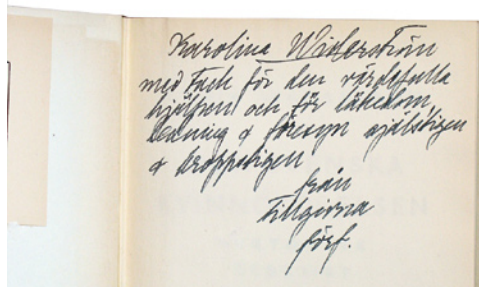 Karolina Widerström
med Tack för den värdefulla
hjälpen och för läkedom,
ledning &
& kroppsligen
från
Tillgivna
förf.